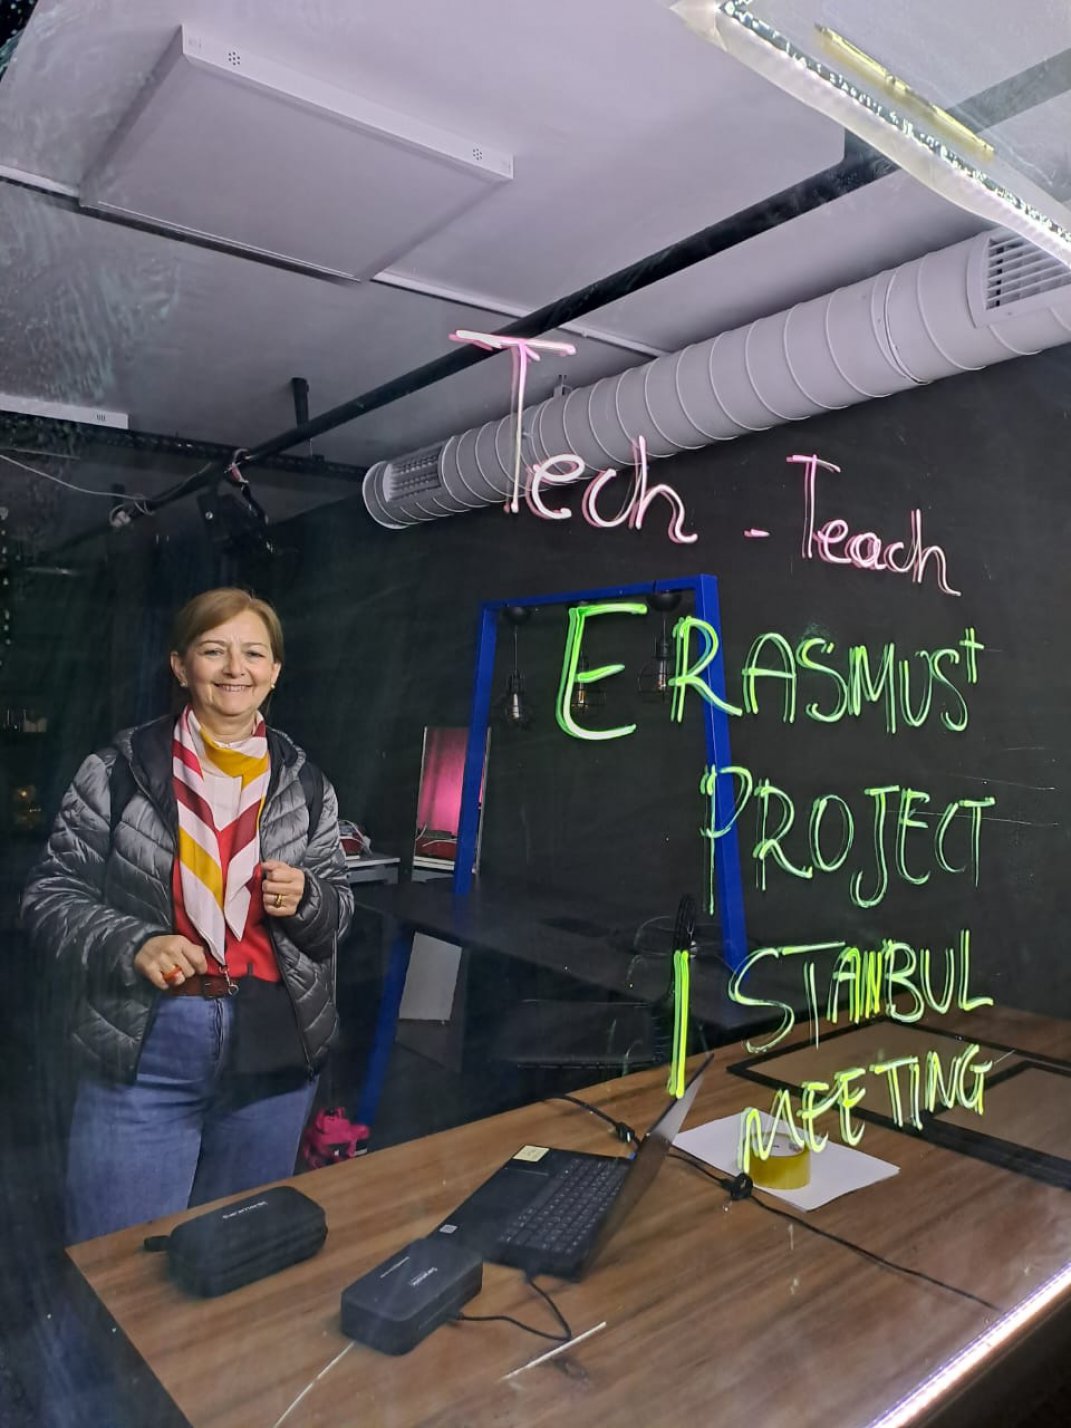 Tech - Teach
ERASMUS+
PROJECT
ISTANBUL
MEETING